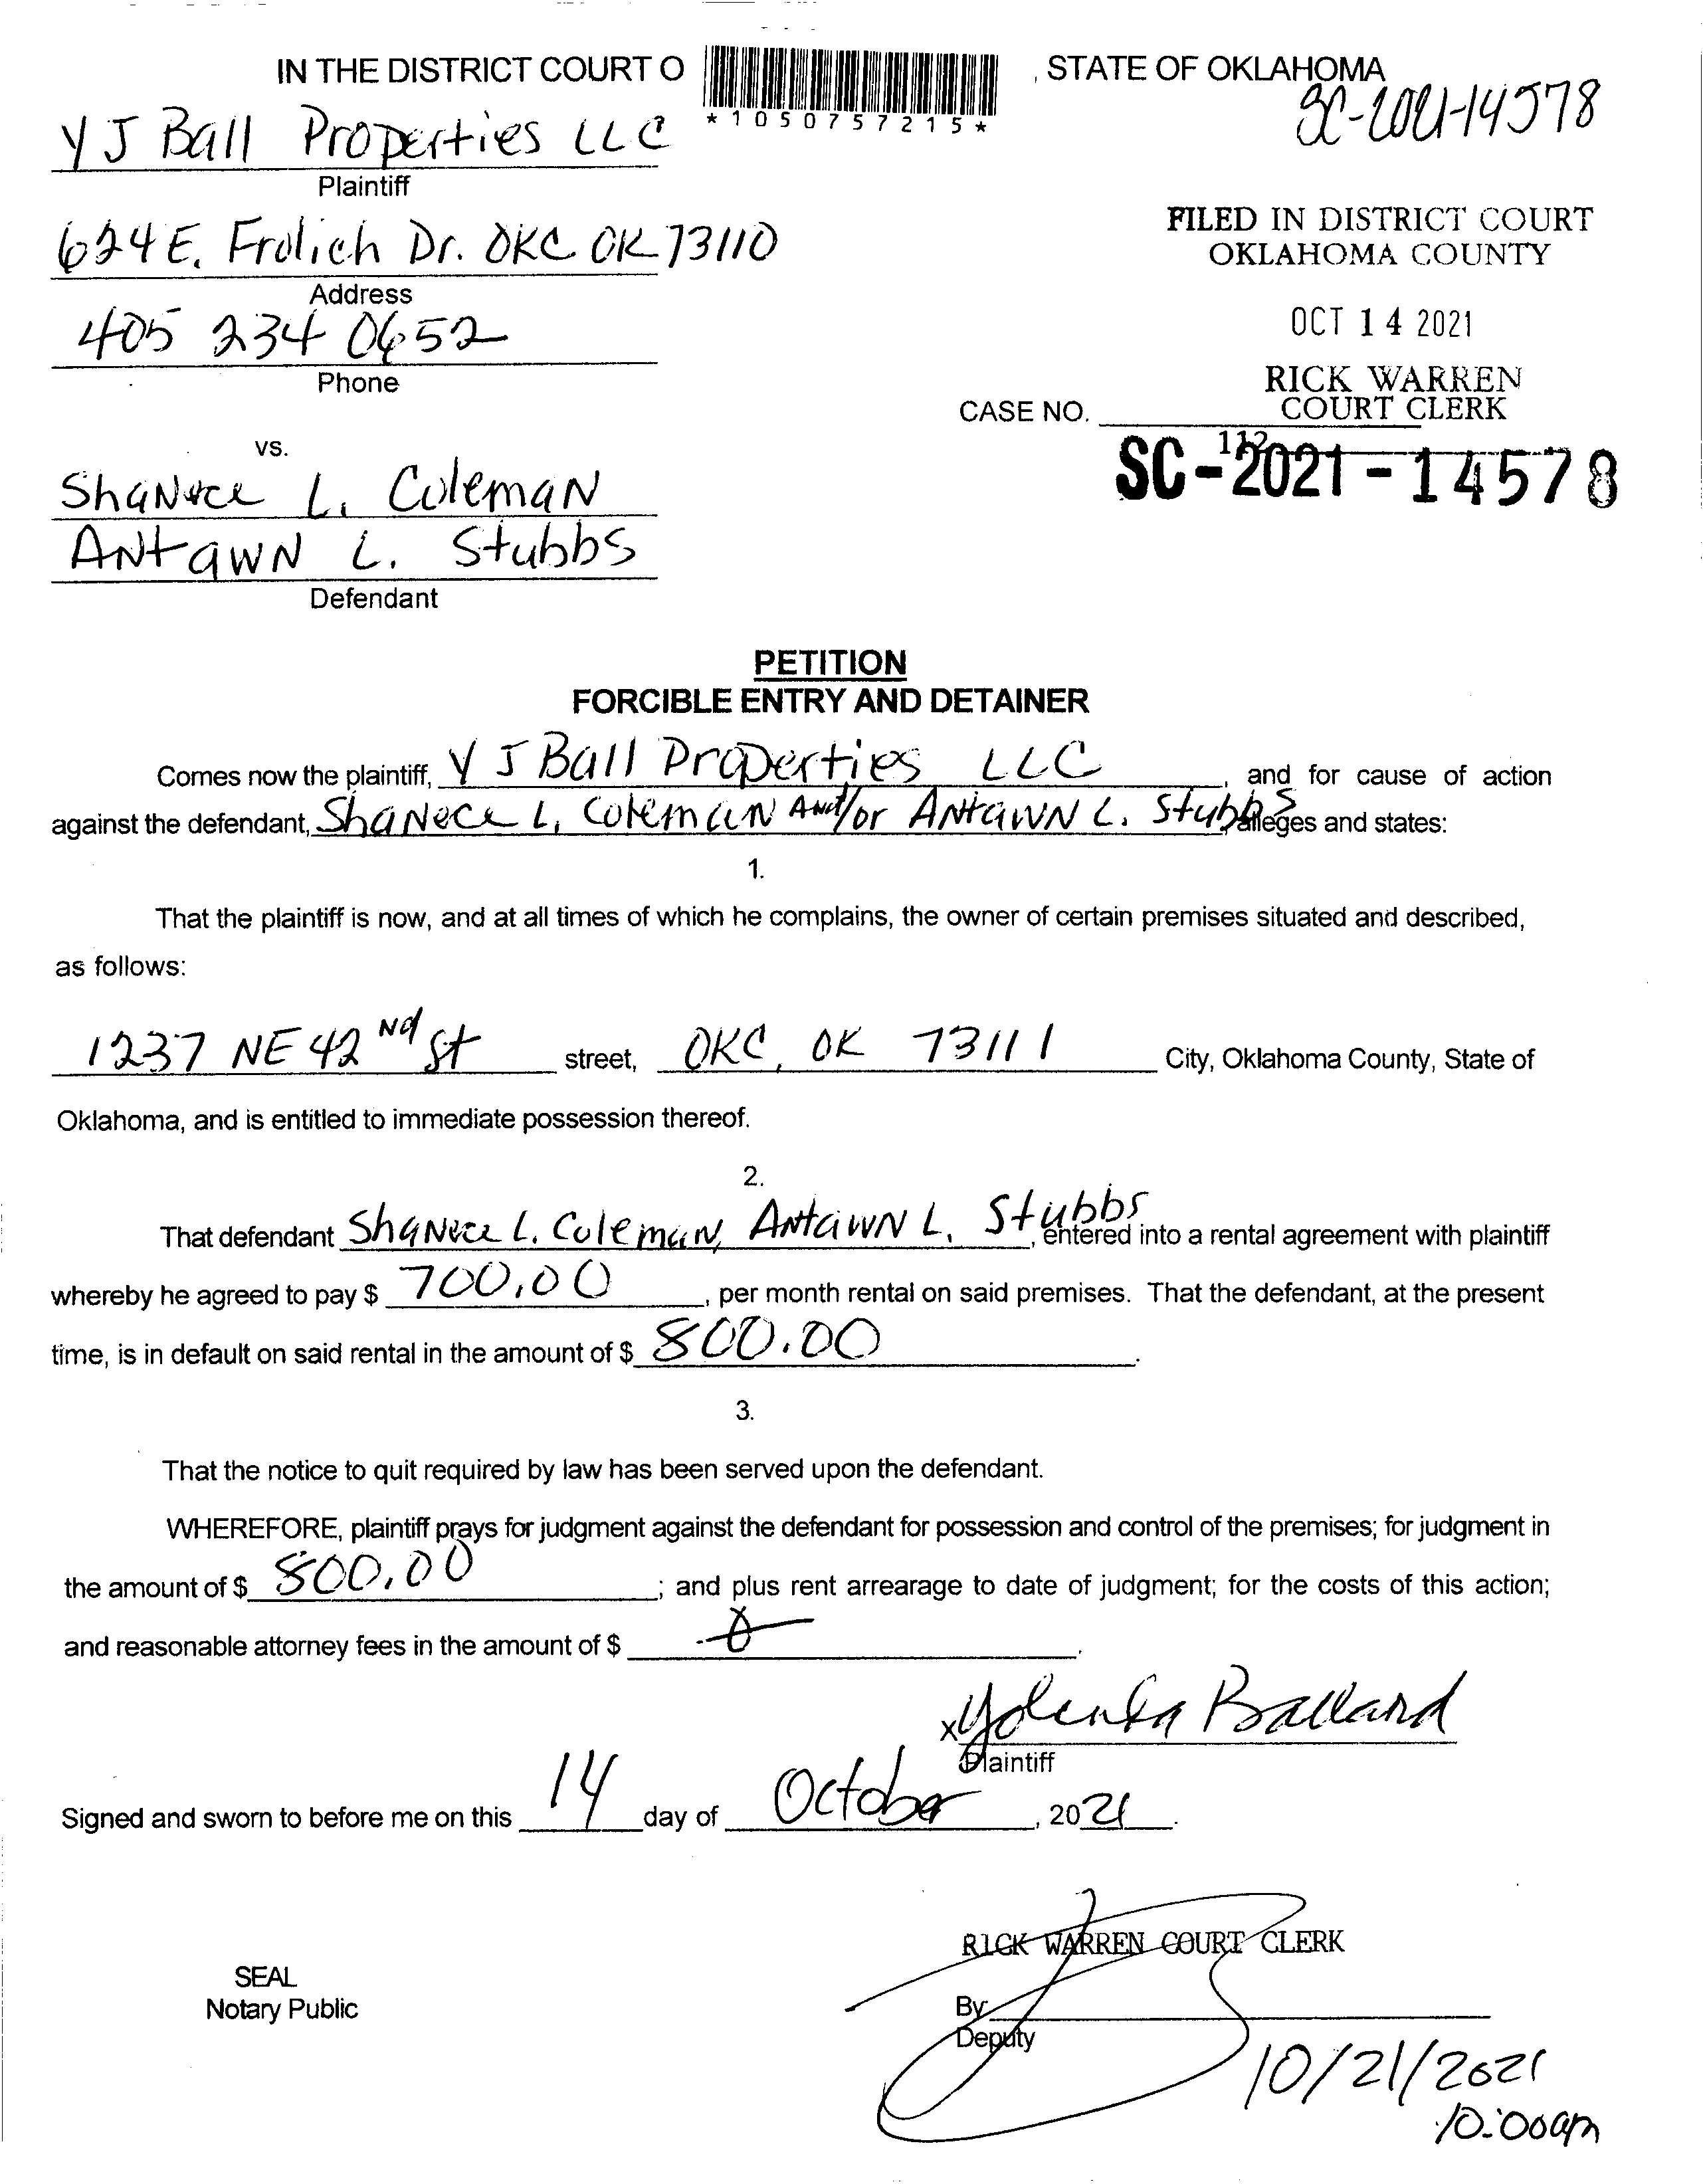 IN THE DISTRICT COURT O , STATE OF OKLAHOMA
*1050757215*
SC-2021-14578
Y J Ball Properties LLC
Plaintiff
624 E. Frolich Dr. OKC OK 73110
Address
405 234 0652
Phone
FILED IN DISTRICT COURT
OKLAHOMA COUNTY
OCT 14 2021
RICK WARREN
COURT CLERK
CASE NO.
112
SC-2021-14578
vs.
Shanece L. Coleman
Antawn L. Stubbs
Defendant
PETITION
FORCIBLE ENTRY AND DETAINER
Comes now the plaintiff, Y J Ball Properties LLC, and for cause of action
against the defendant, Shanece L. Coleman And/or Antawn L. Stubbs, alleges and states:
1.
That the plaintiff is now, and at all times of which he complains, the owner of certain premises situated and described,
as follows:
1237 NE 42nd St street, OKC, OK 73111 City, Oklahoma County, State of
Oklahoma, and is entitled to immediate possession thereof.
2.
That defendant Shanece L. Coleman, Antawn L. Stubbs, entered into a rental agreement with plaintiff
whereby he agreed to pay $ 700.00, per month rental on said premises. That the defendant, at the present
time, is in default on said rental in the amount of $ 800.00.
3.
That the notice to quit required by law has been served upon the defendant.
WHEREFORE, plaintiff prays for judgment against the defendant for possession and control of the premises; for judgment in
the amount of $ 800.00; and plus rent arrearage to date of judgment; for the costs of this action;
and reasonable attorney fees in the amount of $ 0.
x Yolenda Ballard
Plaintiff
Signed and sworn to before me on this 14 day of October, 2021.
RICK WARREN COURT CLERK
SEAL
Notary Public
By
Deputy
10/21/2021
10:00am